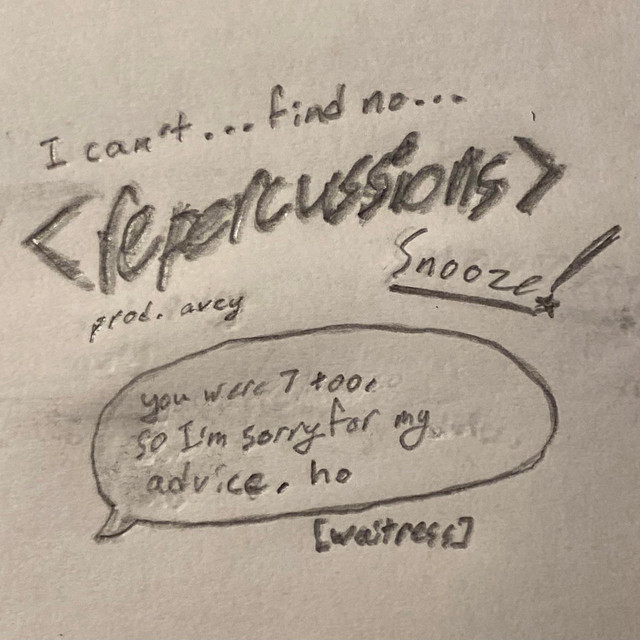 I can't... find no...
<repercussions>
Snooze!
prod. avey
you were 7 too.
so I'm sorry for my
advice, ho
[waitress]